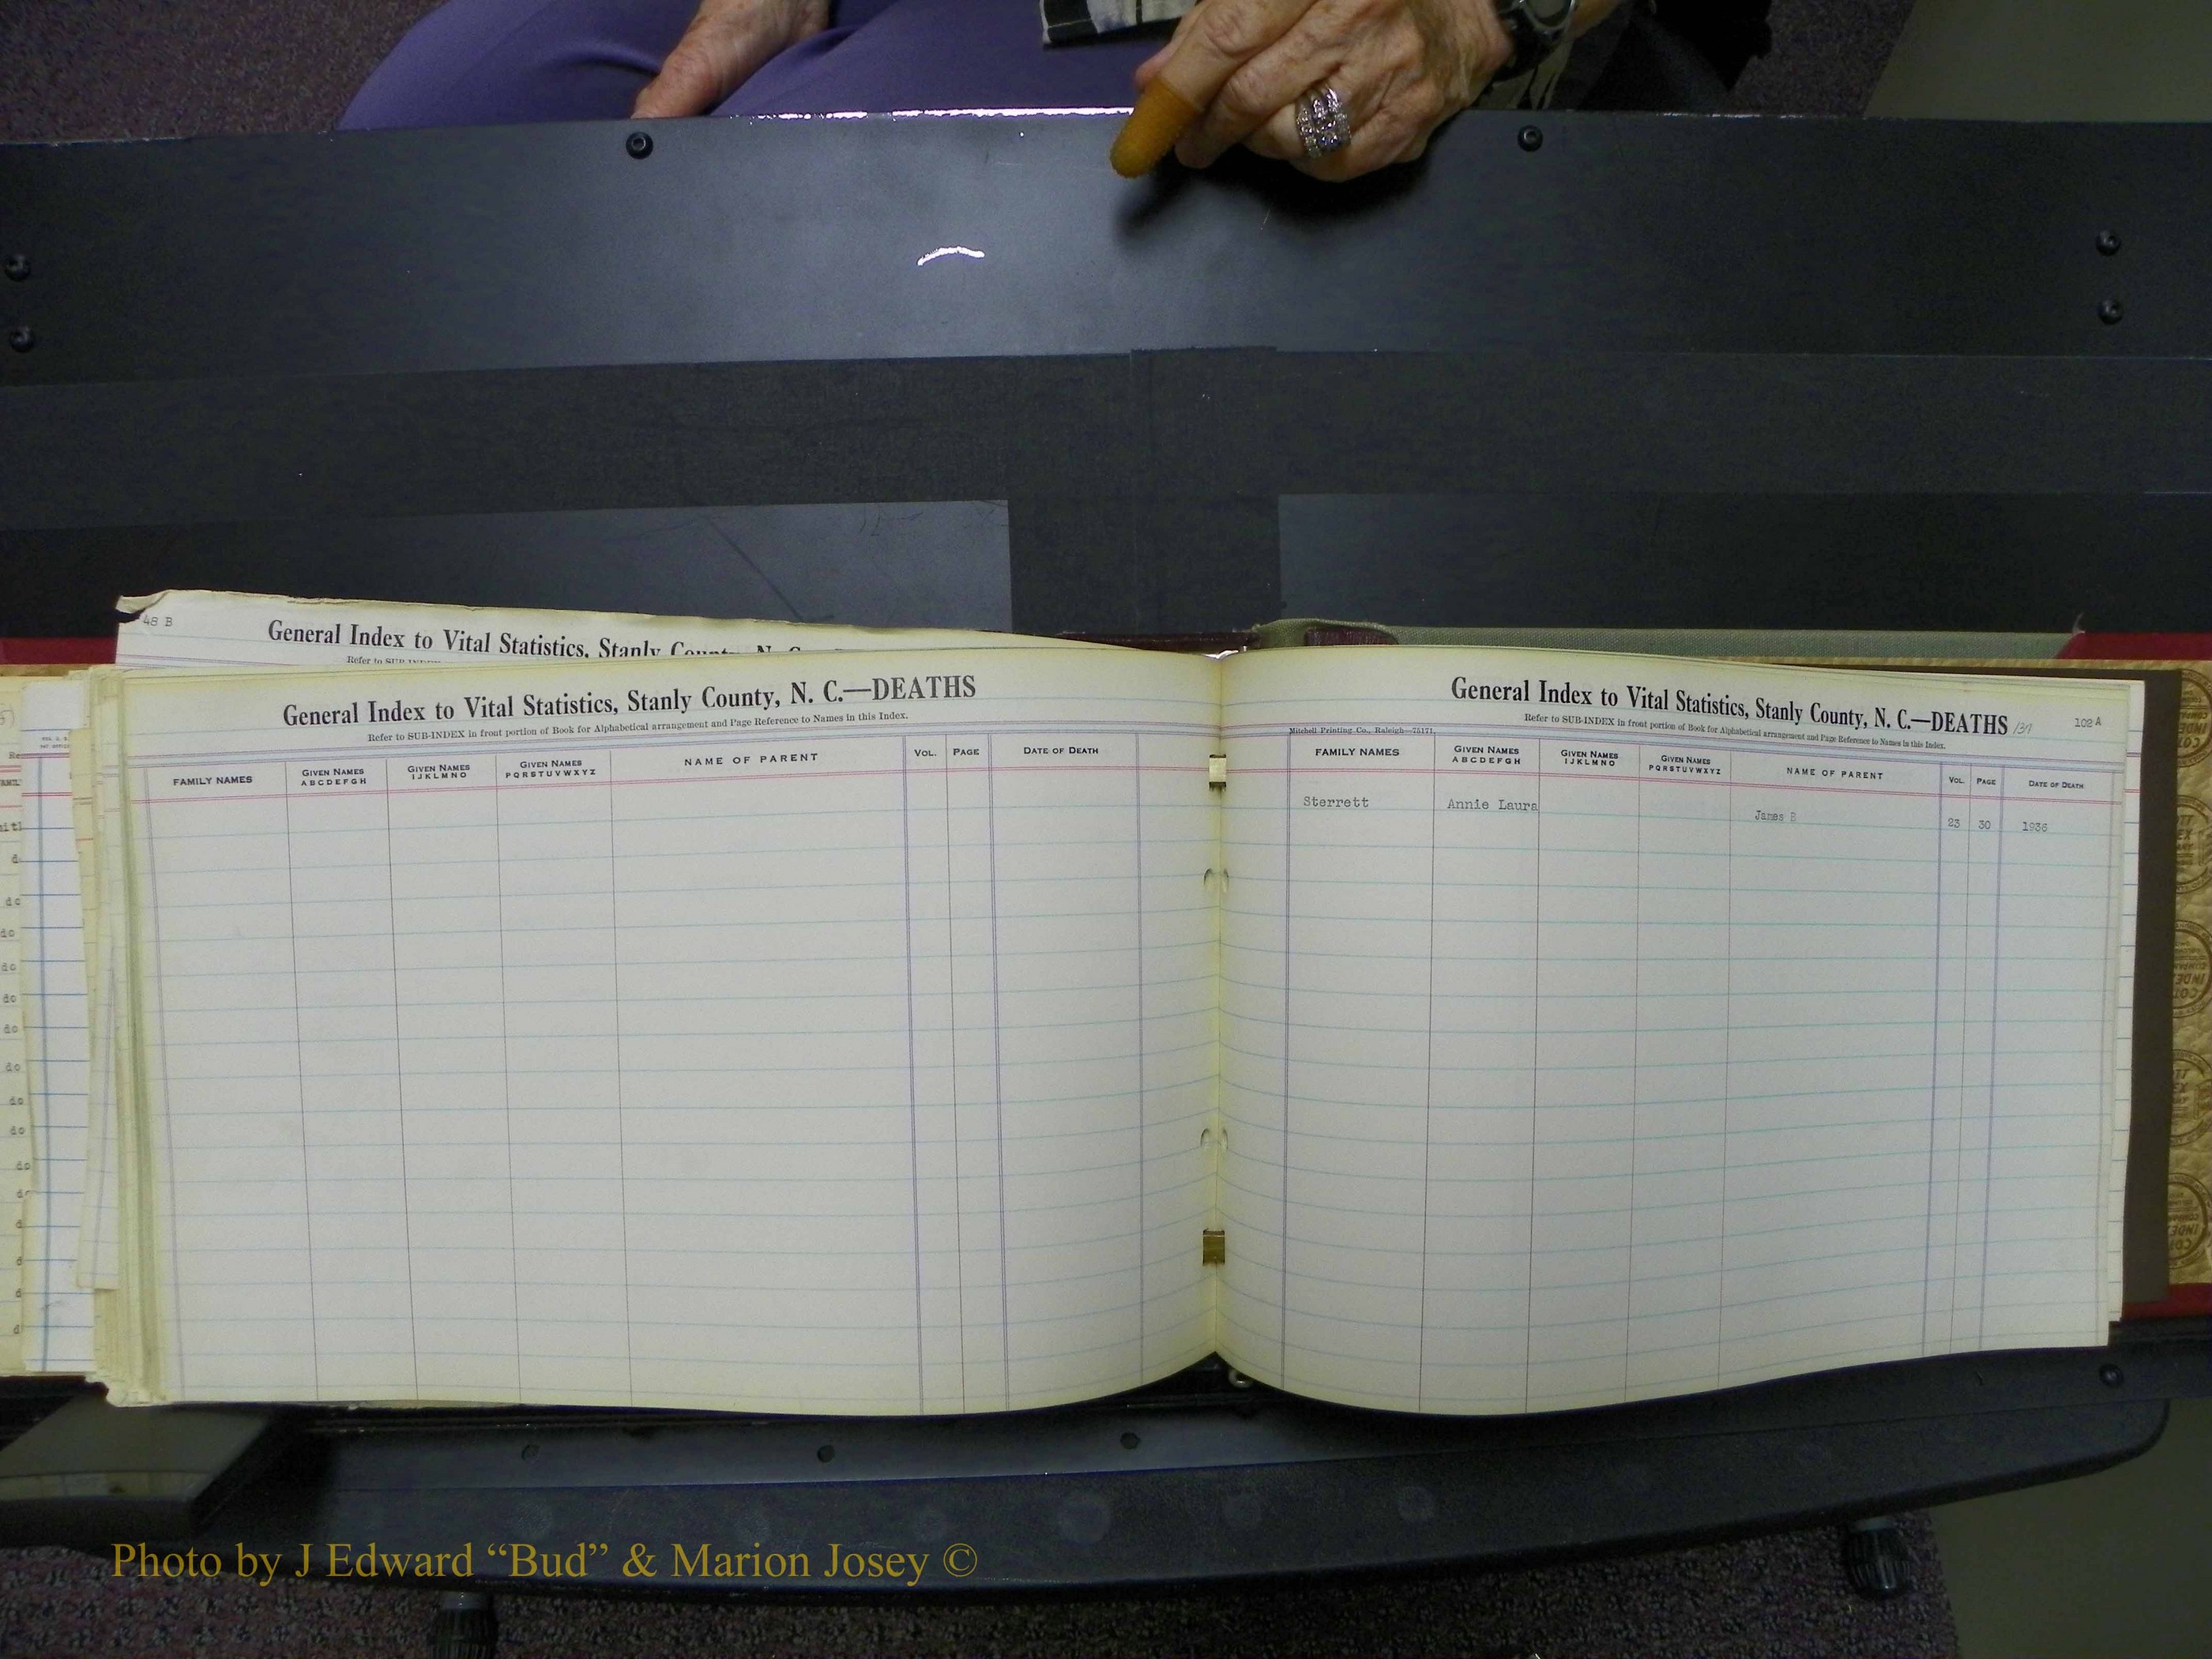 48 B
General Index to Vital Statistics, Stanly County, N. C.
Refer to SUB-INDEX
General Index to Vital Statistics, Stanly County, N. C.—DEATHS
Refer to SUB-INDEX in front portion of Book for Alphabetical arrangement and Page Reference to Names in this Index.
FAMILY NAMES
GIVEN NAMES
ABCDEFGH
GIVEN NAMES
IJKLMNO
GIVEN NAMES
PQRSTUVWXYZ
NAME OF PARENT
VOL.
PAGE
DATE OF DEATH
do
do
do
do
do
do
do
do
do
General Index to Vital Statistics, Stanly County, N. C.—DEATHS
102 A
Refer to SUB-INDEX in front portion of Book for Alphabetical arrangement and Page Reference to Names in this Index.
Mitchell Printing Co., Raleigh—75171
FAMILY NAMES
GIVEN NAMES
ABCDEFGH
GIVEN NAMES
IJKLMNO
GIVEN NAMES
PQRSTUVWXYZ
NAME OF PARENT
VOL.
PAGE
DATE OF DEATH
Sterrett Annie Laura James 23 30 1936
Photo by J Edward “Bud” & Marion Josey ©